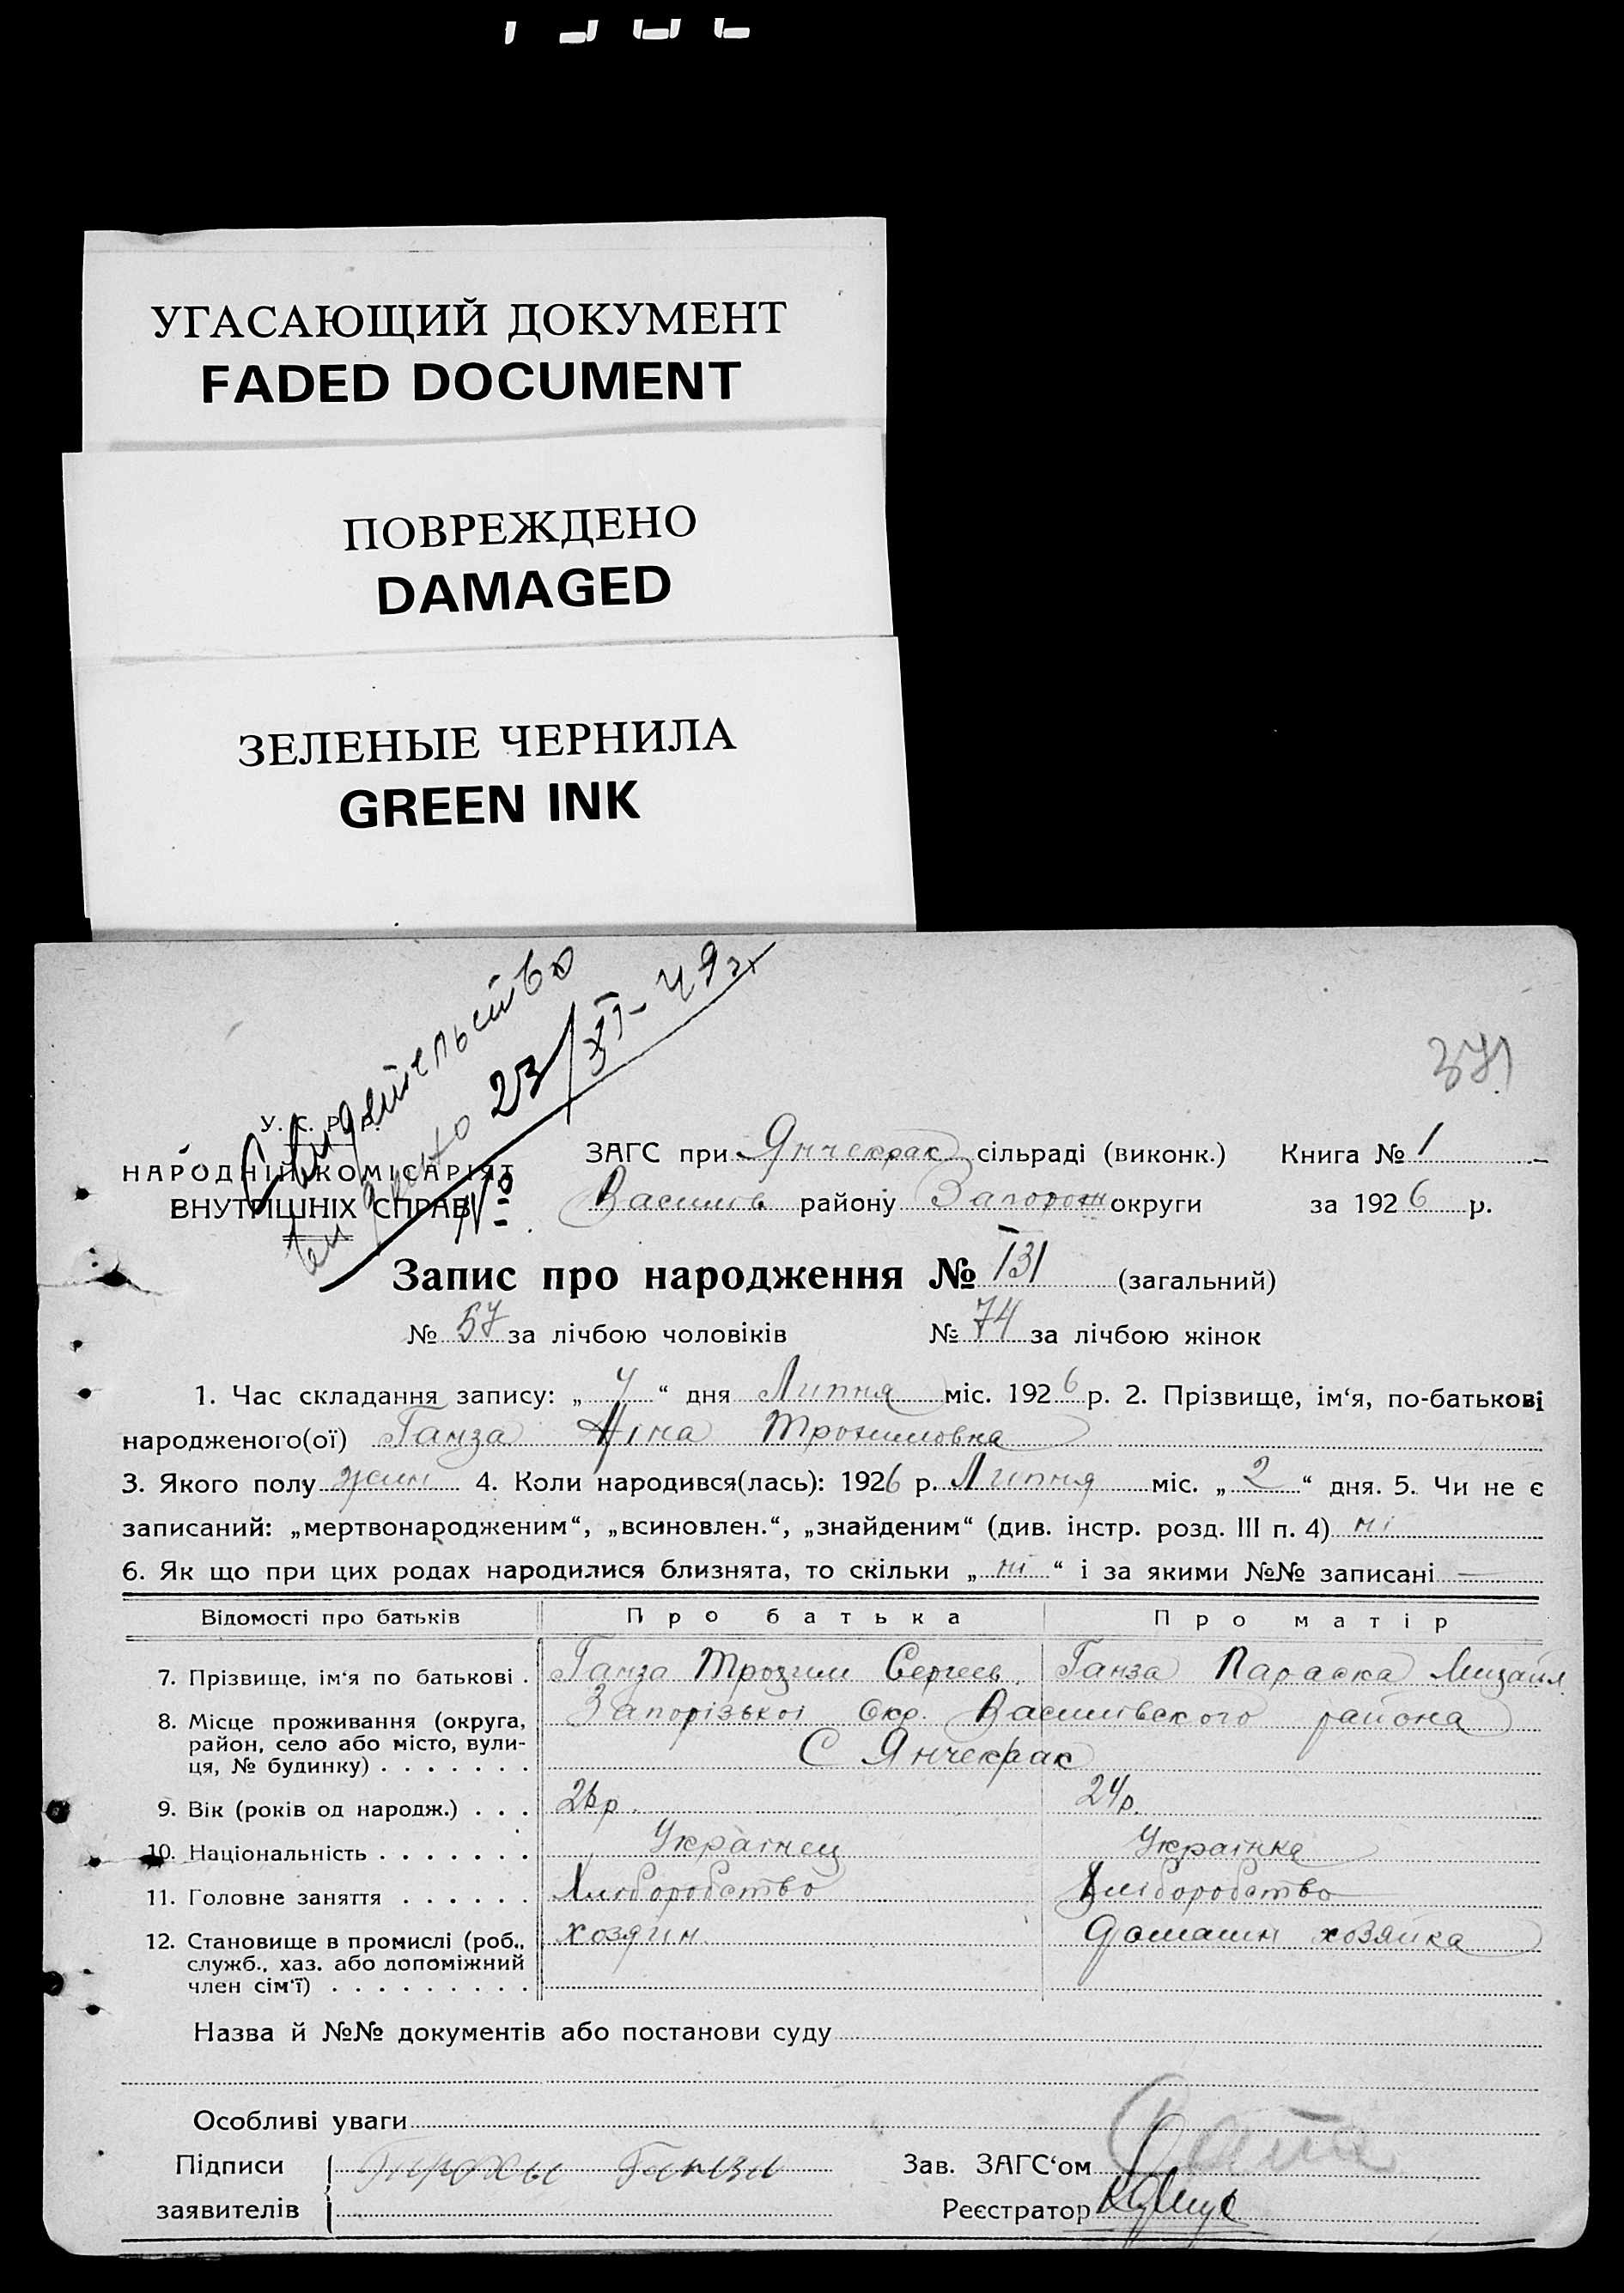 УГАСАЮЩИЙ ДОКУМЕНТ
FADED DOCUMENT
ПОВРЕЖДЕНО
DAMAGED
ЗЕЛЕНЫЕ ЧЕРНИЛА
GREEN INK
Свидетельство
выдано 23/XI-49г
№
371
У. С. Р. Р.
НАРОДНІЙ КОМІСАРІЯТ
ВНУТРІШНІХ СПРАВ
ЗАГС при Янчекрак сільраді (виконк.) Книга № 1
Василів району Запорож округи за 1926 р.
Запис про народження № 131 (загальний)
№ 57 за лічбою чоловіків № 74 за лічбою жінок
1. Час складання запису: „ 4 “ дня Липня міс. 1926 р. 2. Прізвище, ім‘я, по-батькові
народженого(ої) Ганза Ніна Трохимовна
3. Якого полу жин 4. Коли народився(лась): 1926 р. Липня міс. „ 2 “ дня. 5. Чи не є
записаний: „мертвонародженим“, „всиновлен.“, „знайденим“ (див. інстр. розд. III п. 4) ні
6. Як що при цих родах народилися близнята, то скільки „ ні “ і за якими №№ записані —
Відомості про батьків Про батька Про матір
7. Прізвище, ім‘я по батькові . Ганза Трохим Сергеев. Ганза Параска Михайл
8. Місце проживання (округа, Запорізької Окр. Василівского района
район, село або місто, вули- С Янчекрак
ця, № будинку) . . . . . . .
9. Вік (років од народж.) . . . 26р. 24р.
10. Національність . . . . . . . Українец Українка
11. Головне заняття . . . . . . Хліборобство Хліборобство
12. Становище в промислі (роб., хозяин домашн хозяйка
служб., хаз. або допоміжний
член сім‘ї) . . . . . . . . .
Назва й №№ документів або постанови суду
Особливі уваги
Підписи Ганзи Зав. ЗАГС‘ом
заявителів Реєстратор